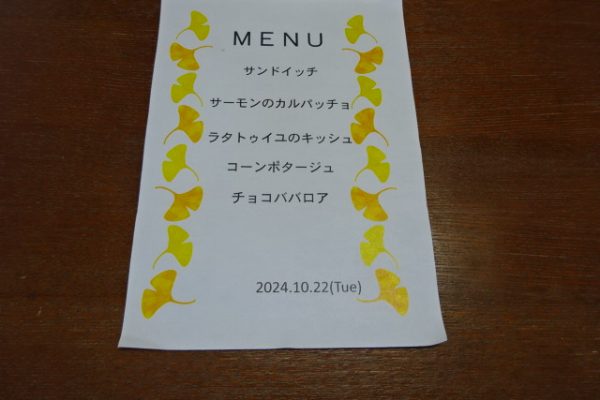 MENU
サンドイッチ
サーモンのカルパッチョ
ラタトゥイユのキッシュ
コーンポタージュ
チョコババロア
2024.10.22(Tue)